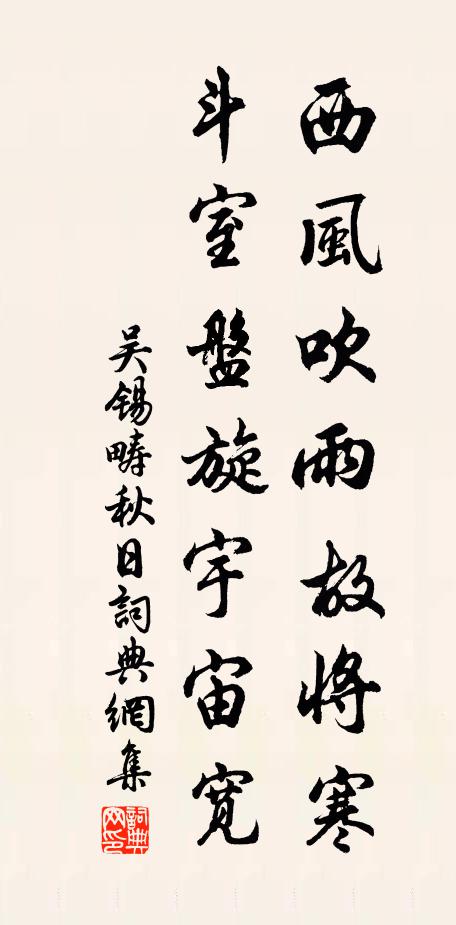 西風吹雨故將寒
斗室盤旋宇宙寬
吴錫疇秋日詞典網集
詞典网印